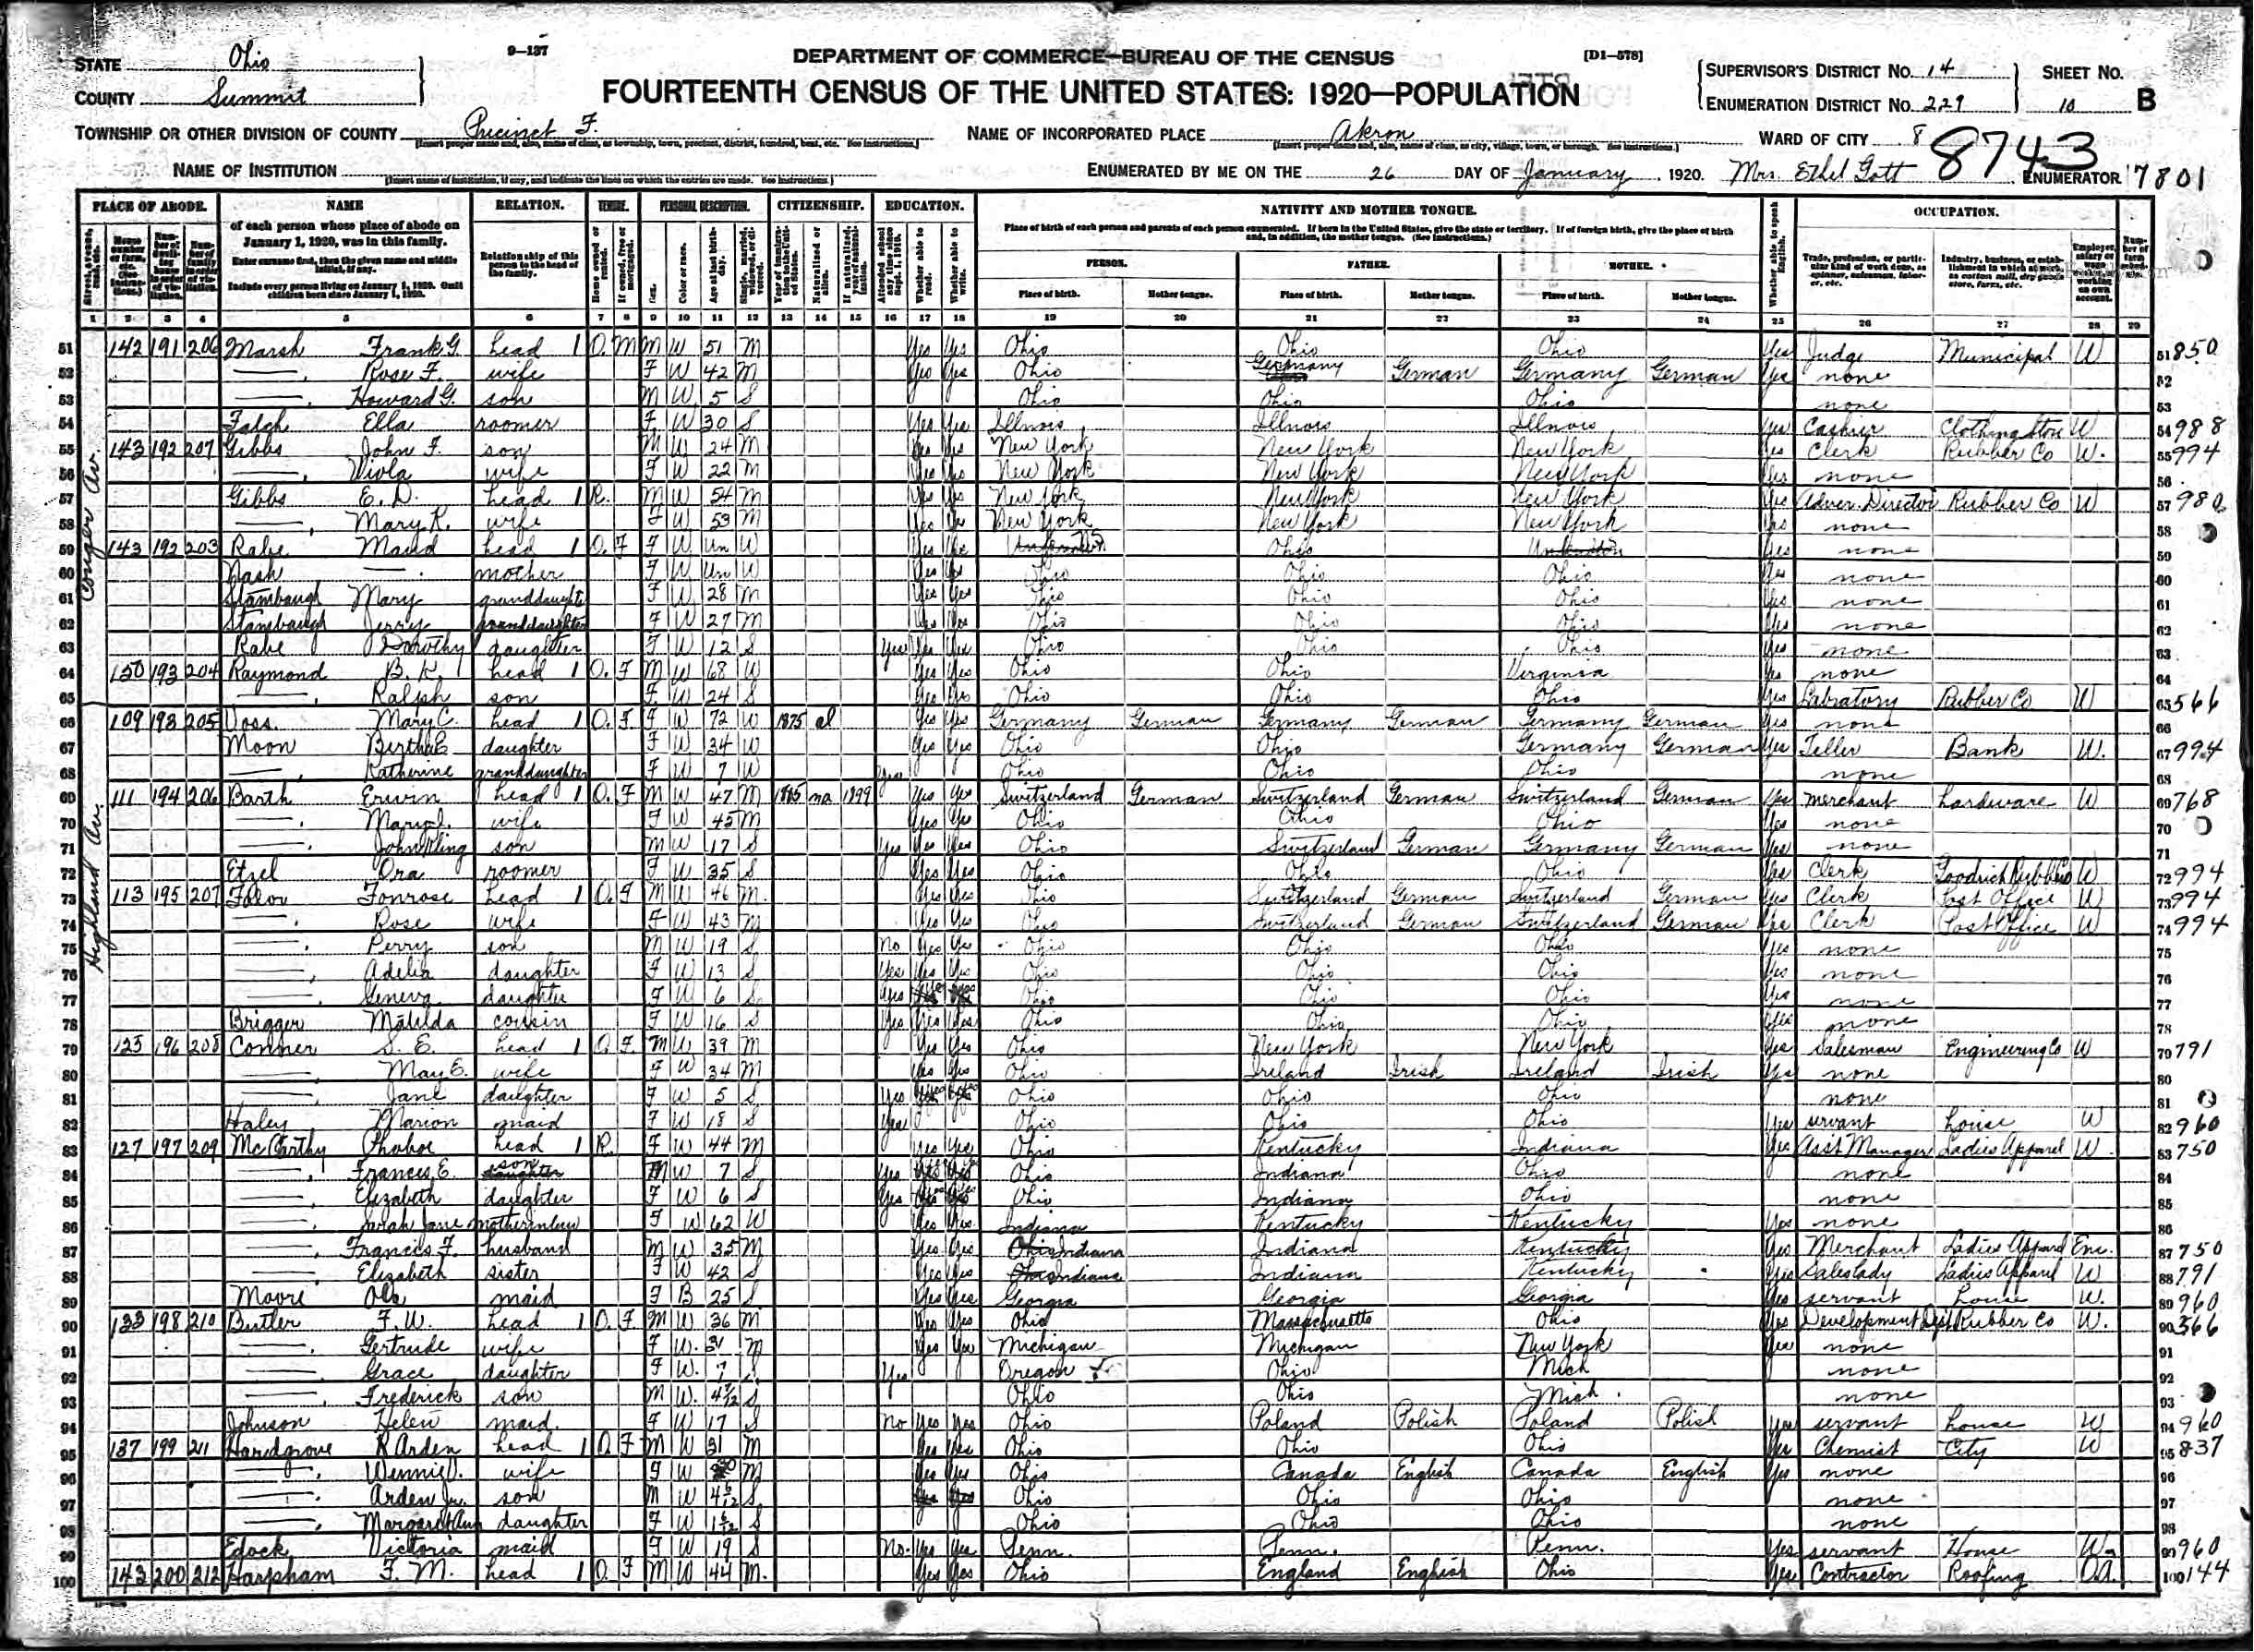 9—137
DEPARTMENT OF COMMERCE—BUREAU OF THE CENSUS
[D1—578]
STATE Ohio
COUNTY Summit
FOURTEENTH CENSUS OF THE UNITED STATES: 1920—POPULATION
SUPERVISOR'S DISTRICT No. 14
SHEET No.
ENUMERATION DISTRICT No. 229
10 B
TOWNSHIP OR OTHER DIVISION OF COUNTY Precinct F.
NAME OF INCORPORATED PLACE Akron
WARD OF CITY 8
8743
NAME OF INSTITUTION
ENUMERATED BY ME ON THE 26 DAY OF January, 1920. Mrs. Ethel Gott ENUMERATOR
7801
PLACE OF ABODE. NAME RELATION. TENURE. PERSONAL DESCRIPTION. CITIZENSHIP. EDUCATION. NATIVITY AND MOTHER TONGUE. OCCUPATION.
of each person whose place of abode on January 1, 1920, was in this family.
Enter surname first, then the given name and middle initial, if any.
Include every person living on January 1, 1920. Omit children born since January 1, 1920.
Relationship of this person to the head of the family.
PERSON. FATHER. MOTHER.
Place of birth. Mother tongue. Place of birth. Mother tongue. Place of birth. Mother tongue.
1 2 3 4 5 6 7 8 9 10 11 12 13 14 15 16 17 18 19 20 21 22 23 24 25 26 27 28 29
Conger Av.
51 142 191 206 Marsh Frank G. head 1 O. M M W 51 M Yes Yes Ohio Ohio Ohio Yes Judge Municipal W 51 850
52 Rose F. wife F W 42 M Yes Yes Ohio Germany German Germany German Yes none 52
53 Howard G. son M W 5 S Ohio Ohio Ohio none 53
54 Ella roomer F W 30 S Yes Yes Illnois Illnois Illnois Yes Cashier Clothing Store W 54 988
55 143 192 207 Gibbs John F. son M W 24 M Yes Yes New York New York New York Yes Clerk Rubber Co W. 55 994
56 Viola wife F W 22 M Yes Yes New York New York New York Yes none 56
57 Gibbs E. D. head 1 R. M W 54 M Yes Yes New York New York New York Yes Adver. Director Rubber Co W 57 980
58 Mary K. wife F W 53 M Yes Yes New York New York New York Yes none 58
59 143 192 203 Rabe Maud head 1 O. F F W Un W Yes Yes Ohio Yes none 59
60 Nash mother F W Un W Yes Yes Ohio Ohio Ohio Yes none 60
61 Stambaugh Mary granddaughter F W 28 M Yes Yes Ohio Ohio Ohio Yes none 61
62 Stambaugh Jerry granddaughter F W 27 M Yes Yes Ohio Ohio Ohio Yes none 62
63 Rabe Dorothy daughter F W 12 S Yes Yes Yes Ohio Ohio Ohio Yes none 63
64 150 193 204 Raymond B. K. head 1 O. F M W 68 W Yes Yes Ohio Ohio Virginia Yes none 64
65 Ralpsh son F W 24 S Yes Yes Ohio Ohio Ohio Yes Labratory Rubber Co W 65 566
Highland Av.
66 109 193 205 Voss Mary C. head 1 O. F F W 72 W 1875 al Yes Yes Germany German Germany German Germany German Yes none 66
67 Moon Bertha E daughter F W 34 W Yes Yes Ohio Ohio Germany German Yes Teller Bank W. 67 994
68 Katherine granddaughter F W 7 W Yes Ohio Ohio Ohio none 68
69 111 194 206 Barth Erwin head 1 O. F M W 47 M 1885 na 1899 Yes Yes Switzerland German Switzerland German Switzerland German Yes merchant hardware W 69 768
70 wife F W 45 M Yes Yes Ohio Ohio Ohio Yes none 70
71 John Kling son M W 17 S Yes Yes Yes Ohio Switzerland German Germany German Yes none 71
72 Etzel Ora roomer F W 35 S Yes Yes Ohio Ohio Ohio Yes Clerk Goodrich Rubber Co W 72 994
73 113 195 207 Folor Fonrose head 1 O. F M W 46 M. Yes Yes Ohio Switzerland German Switzerland German Yes Clerk Post Office W 73 994
74 Rose wife F W 43 M Yes Yes Ohio Switzerland German Switzerland German Yes Clerk Post Office W 74 994
75 Perry son M W 19 S No Yes Yes Ohio Ohio Ohio Yes none 75
76 Adelia daughter F W 13 S Yes Yes Yes Ohio Ohio Ohio Yes none 76
77 Geneva daughter F W 6 S Yes Ohio Ohio Ohio Yes none 77
78 Brigger Matilda cousin F W 16 S Yes Yes Yes Ohio Ohio Ohio Yes none 78
79 125 196 208 Conner S. E. head 1 O. F. M W 39 M Yes Yes Ohio New York New York Yes Salesman Engineering Co W 79 791
80 May E. wife F W 34 M Yes Yes Ohio Ireland Irish Ireland Irish Yes none 80
81 Jane daughter F W 5 S Yes Ohio Ohio Ohio none 81
82 Haley Marion maid F W 18 S Yes Ohio Ohio Ohio Yes servant house W 82 960
83 127 197 209 McCarthy Phoboe head 1 R. F W 44 M Yes Yes Ohio Kentucky Indiana Yes Asist Manager Ladies Apparel W. 83 750
84 Francis E. son M W 7 S Yes Ohio Indiana Ohio none 84
85 Elizabeth daughter F W 6 S Yes Ohio Indiana Ohio none 85
86 Sarah Jane motherinlaw F W 62 W Yes Yes Indiana Kentucky Kentucky Yes none 86
87 Francis F. husband M W 35 M Yes Yes Indiana Indiana Kentucky Yes Merchant Ladies Apparel Em. 87 750
88 Elizabeth sister F W 42 S Yes Yes Indiana Indiana Kentucky Yes Saleslady Ladies Apparel W 88 791
89 Moore Ola maid F B 25 S Yes Yes Georgia Georgia Georgia Yes servant house W. 89 960
90 133 198 210 Butler F. W. head 1 O. F M W 36 M Yes Yes Ohio Massachusetts Ohio Yes Development Dept Rubber Co W. 90 566
91 Gertrude wife F W. 31 M Yes Yes Michigan Michigan New York Yes none 91
92 Grace daughter F W. 7 S Yes Oregon Ohio Mich none 92
93 Frederick son M W. S Ohio Ohio Mich. none 93
94 Johnson Helen maid F W 17 S No Yes Yes Ohio Poland Polish Poland Polish Yes servant house W 94 960
95 137 199 211 Hardgrove R Arden head 1 O F M W 31 M Yes Yes Ohio Ohio Ohio Yes Chemist City W 95 837
96 Wennie D. wife F W M Yes Yes Ohio Canada English Canada English Yes none 96
97 Arden Jr. son M W 4 6/12 S Ohio Ohio Ohio none 97
98 Margaret Ann daughter F W 1 6/12 S Ohio Ohio Ohio none 98
99 Edock Victoria maid F W 19 S No. Yes Yes Penn. Penn. Penn. Yes servant House W 99 960
100 143 200 212 Harpham F. M. head 1 O. F M W 44 M. Yes Yes Ohio England English Ohio Yes Contractor Roofing O.A. 100 144